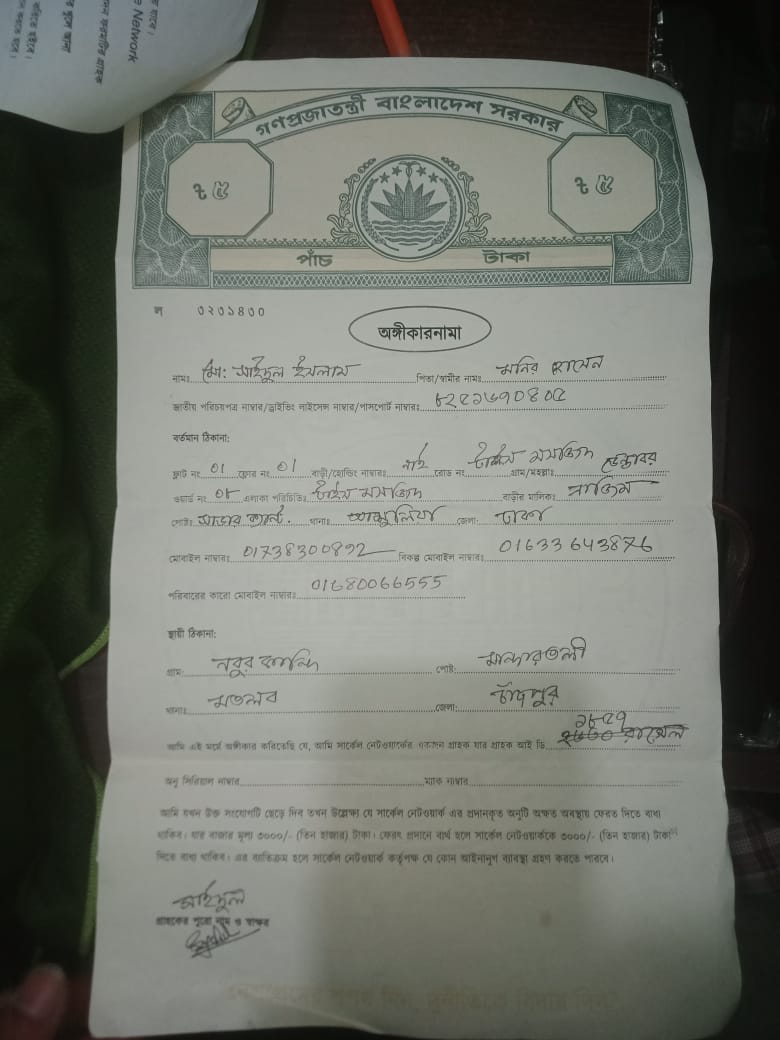 গণপ্রজাতন্ত্রী বাংলাদেশ সরকার
৳ ৫ ৳ ৫
পাঁচ টাকা
ল ৩২৩১৪০০
অঙ্গীকারনামা
নামঃ মো: সাইদুল ইসলাম পিতা/স্বামীর নামঃ মনির হোসেন
জাতীয় পরিচয়পত্র নাম্বার/ড্রাইভিং লাইসেন্স নাম্বার/পাসপোর্ট নাম্বারঃ
বর্তমান ঠিকানা:
ফ্লাট নং 01 ফ্লোর নং 01 বাড়ী/হোল্ডিং নাম্বারঃ নাই রোড নং টাইম মসজিদ গ্রাম/মহল্লাঃ
ওয়ার্ড নং 08 এলাকা পরিচিতিঃ টাইম মসজিদ বাড়ীর মালিকঃ
পোষ্টঃ সাভার ক্যান্ট. থানাঃ আশুলিয়া জেলা: ঢাকা
মোবাইল নাম্বারঃ 01738300892 বিকল্প মোবাইল নাম্বারঃ 01633643876
পরিবারের কারো মোবাইল নাম্বারঃ 01680066555
স্থায়ী ঠিকানা:
গ্রাম: পোষ্ট: মান্দারতলী
থানাঃ মতলব জেলা: চাঁদপুর
১৮৫৭
আমি এই মর্মে অঙ্গীকার করিতেছি যে, আমি সার্কেল নেটওয়ার্কের একজন গ্রাহক যার গ্রাহক আই ডি
অনু সিরিয়াল নাম্বার ম্যাক নাম্বার
আমি যখন উক্ত সংযোগটি ছেড়ে দিব তখন উল্লেখ্য যে সার্কেল নেটওয়ার্ক এর প্রদানকৃত অনুটি অক্ষত অবস্থায় ফেরত দিতে বাধ্য
থাকিব। যার বাজার মূল্য ৩০০০/- (তিন হাজার) টাকা। ফেরৎ প্রদানে ব্যর্থ হলে সার্কেল নেটওয়ার্ককে ৩০০০/- (তিন হাজার) টাকা
দিতে বাধ্য থাকিব। এর ব্যতিক্রম হলে সার্কেল নেটওয়ার্ক কর্তৃপক্ষ যে কোন আইনানুগ ব্যবস্থা গ্রহণ করতে পারবে।
সাইদুল
গ্রাহকের পুরো নাম ও স্বাক্ষর